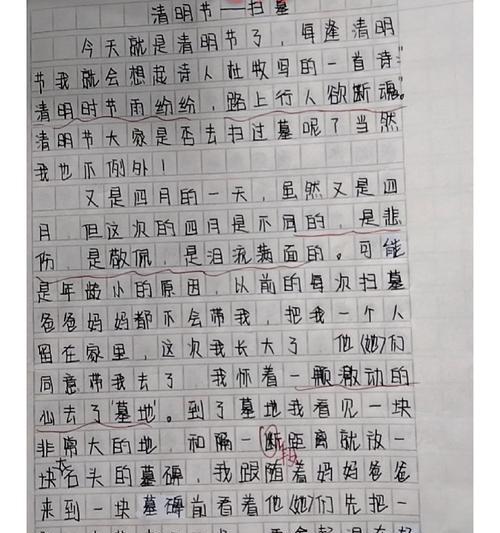 清明节——扫墓
今天就是清明节了，每逢清明
节我就会想起诗人杜牧写的一首诗：“
清明时节雨纷纷，路上行人欲断魂。”
清明节大家是否去扫过墓呢了当然
我也不例外！
又是四月的一天，虽然又是四
月，但这次的四月是不同的，是悲
伤，是敬佩，是泪流满面的。可能
是年龄小的原因，以前的每次扫墓
爸爸妈妈都不会带我，把我一个人
留在家里，这次我长大了，他(她)们
同意带我去了，我怀着一颗激动的
心去了“墓地”。到了墓地我看见一块
非常大的地，和隔一断距离就放一
块大石头的墓碑，我跟随着妈妈爸爸
来到一块墓碑前看着他(她)们先把一